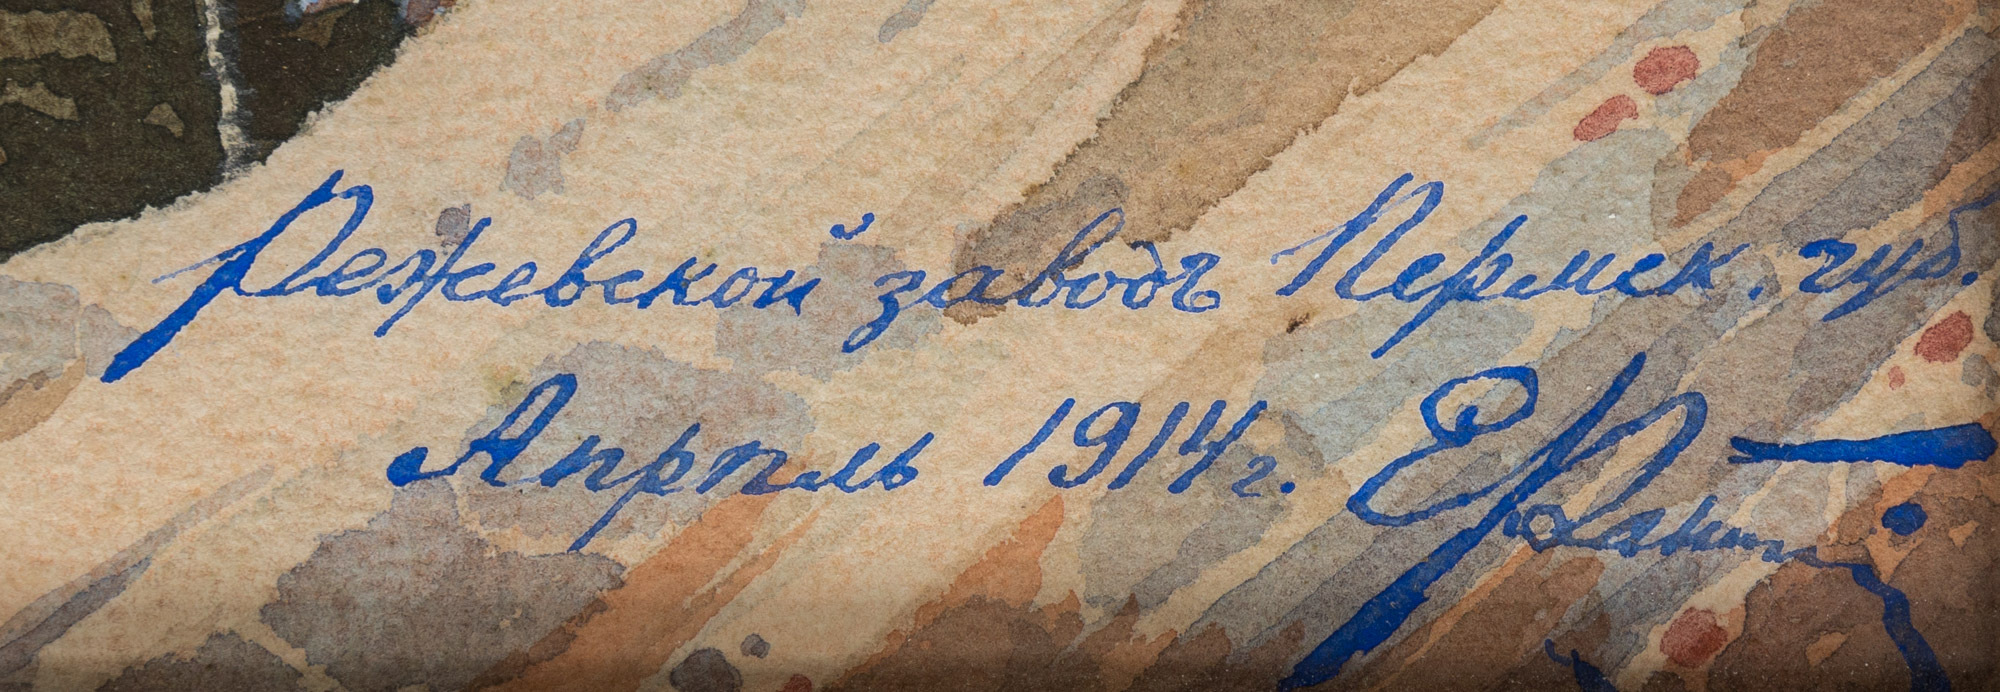 Режевской заводъ Пермск. губ.
Апрпль 1914 г.